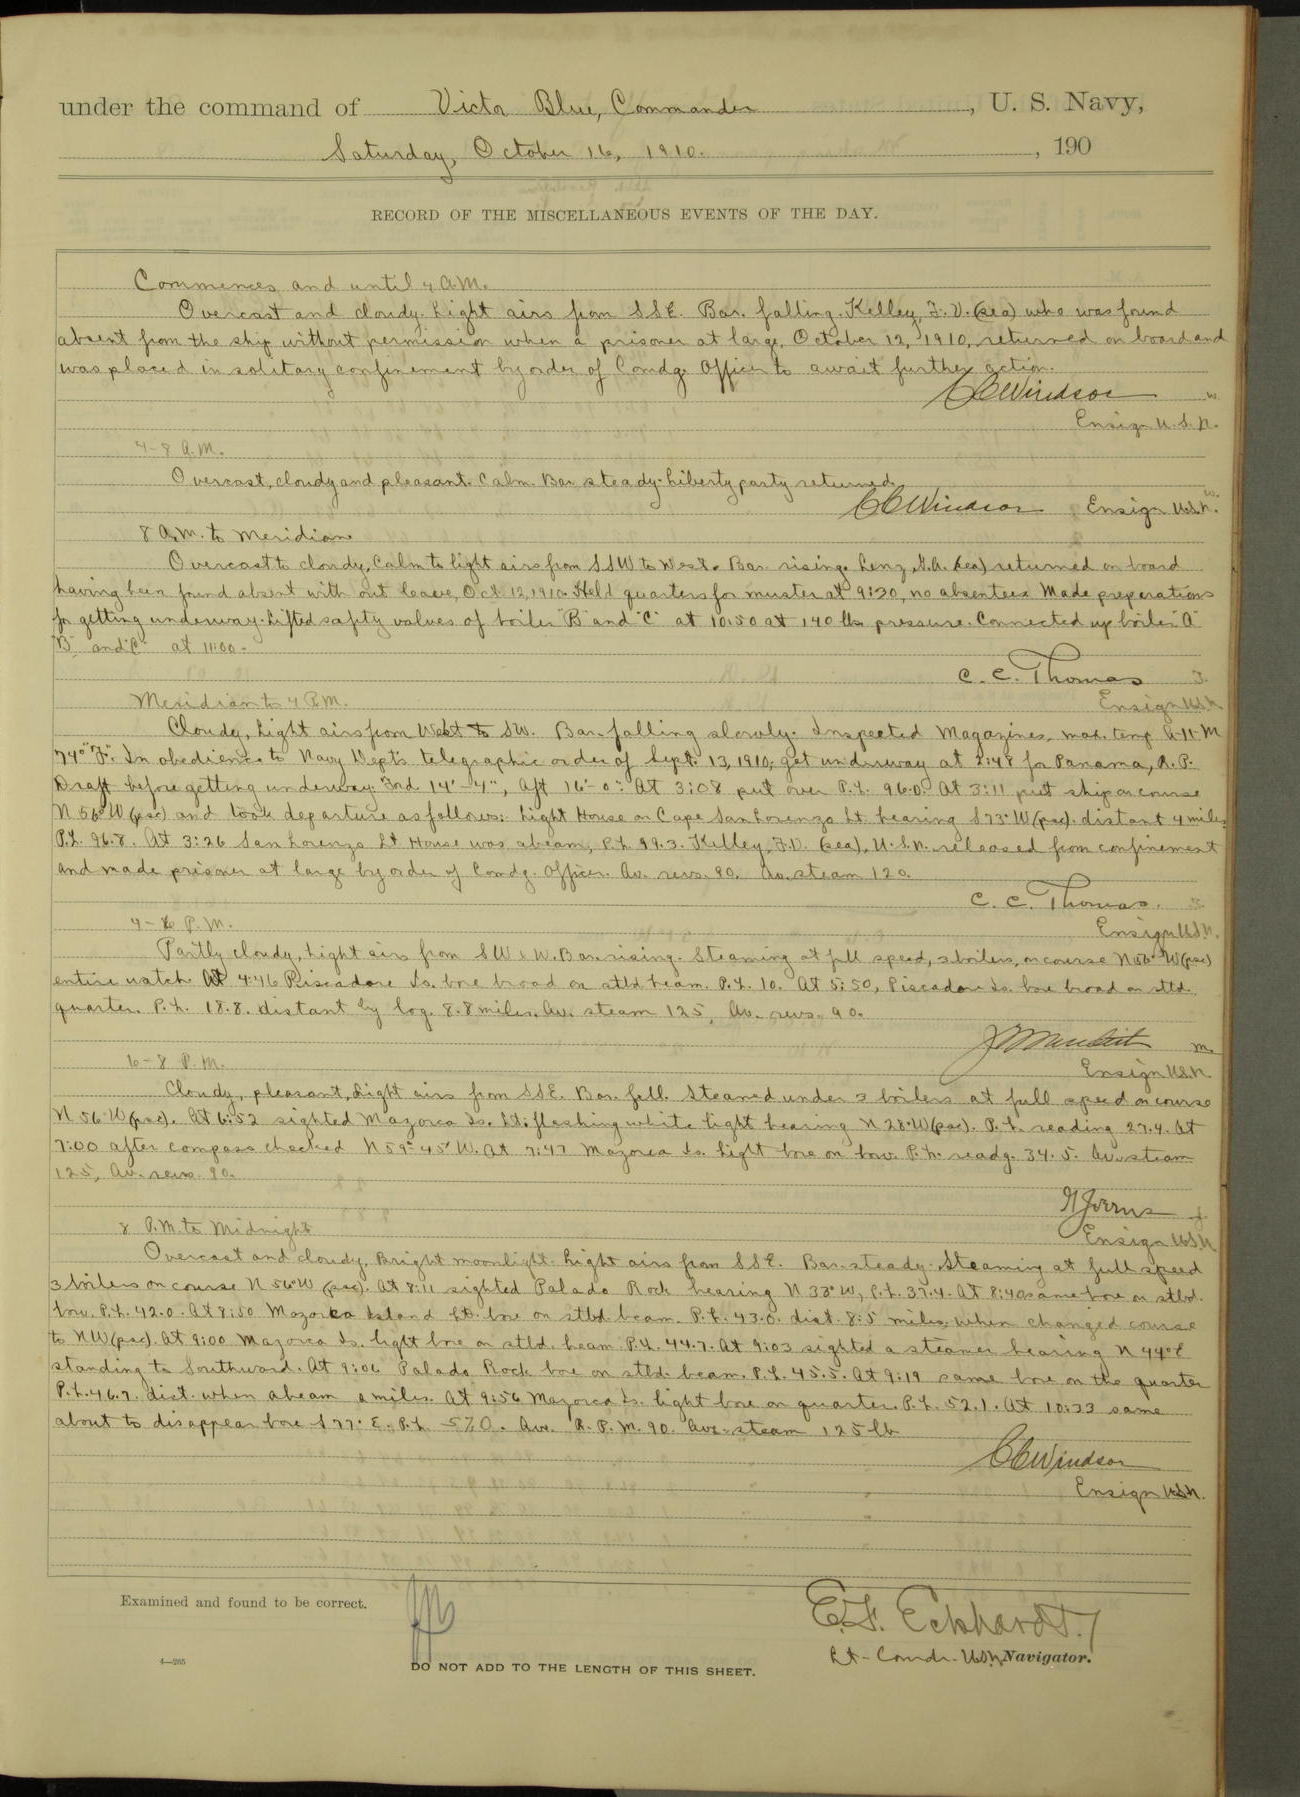 under the command of Victor Blue, Commander, U. S. Navy,
Saturday, October 16, 1910. , 190
RECORD OF THE MISCELLANEOUS EVENTS OF THE DAY.
Commences and until 4 A.M.
Overcast and cloudy. Light airs from SSE. Bar. falling. Kelley, F. V. (sea) who was found
absent from the ship without permission when a prisoner at large, October 12, 1910, returned on board and
was placed in solitary confinement by order of Comdg. Officer to await further action.
C C Windsor w.
Ensign U.S.N.
4-8 A.M.
Overcast, cloudy and pleasant. Calm. Bar steady. Liberty party returned.
C C Windsor Ensign U.S.N. w.
8 A.M. to Meridian
Overcast to cloudy, Calm to light airs from SSW to West. Bar. rising. Lenz, (sea) returned on board
having been found absent with out leave, Oct. 12, 1910. Held quarters for muster at 9:30, no absentees. Made preparations
for getting underway. Lifted safety valves of boiler "B" and "C" at 10:50 at 140 lbs pressure. Connected up boiler "A"
"B" and "C" at 11:00.
C. C. Thomas T.
Ensign U.S.N
Meridian to 4 P.M.
Cloudy, Light airs from West to SW. Bar. falling slowly. Inspected Magazines, max. temp A-11-M
74° "F". In obedience to Navy Dept's telegraphic order of Sept. 13, 1910, got underway at 2:48 for Panama, R.P.
Draft before getting underway: Frd 14'-4", Aft 16'-0". At 3:08 put over P.L. 96.0. At 3:11 put ship on course
N 56° W (psc) and took departure as follows: Light House on Cape San Lorenzo Lt. bearing S 73° W (psc). distant 4 miles
P.L. 96.8. At 3:26 San Lorenzo Lt House was abeam, P.L 99.3. Kelley, F.V. (sea), U.S.N. released from confinement
and made prisoner at large by order of Comdg. Officer. Av. revs. 90. Av. steam 120.
C. C. Thomas.
Ensign U.S.N.
4-6 P.M.
Partly cloudy, Light airs from SW & W. Bar. rising. Steaming at full speed, 3 boilers, on course N 56° W (psc)
entire watch. At 4:46 Piscadore Is. bore broad on stbd beam. P.L. 10. At 5:50, Piscadore Is. bore broad on stbd.
quarter. P.L. 18.8. distant by log. 8.8 miles. Av. steam 125, Av. revs. 90.
m.
Ensign U.S.N.
6-8 P.M.
Cloudy, pleasant, Light airs from SSE. Bar. fell. Steamed under 3 boilers at full speed on course
N 56° W (psc). At 6:52 sighted Mazorca Is. Lt. flashing white light bearing N 28° W (psc). P.L. reading 27.4. At
7:00 after compass checked N 59° 45' W. At 7:47 Mazorca Is. Light bore on bow. P.L. readg. 34.5. Av. steam
125, Av. revs. 90.
j
Ensign U.S.N
8 P.M. to Midnight
Overcast and cloudy, Bright moonlight. Light airs from SSE. Bar. steady. Steaming at full speed
3 boilers on course N 56° W (psc). At 8:11 sighted Palado Rock bearing N 33° W, P.L. 37.4. At 8:40 same bore on stbd.
bow. P.L. 42.0. At 8:50 Mazorca Island Lt. bore on stbd. beam. P.L. 43.0. dist. 8.5 miles, when changed course
to NW (psc). At 9:00 Mazorca Is. light bore on stbd. beam P.L. 44.7. At 9:03 sighted a steamer bearing N 44° E
standing to Southward. At 9:06 Palado Rock bore on stbd. beam. P.L. 45.5. At 9:19 same bore on the quarter
P.L. 46.7. dist. when abeam miles. At 9:56 Mazorca Is. light bore on quarter. P.L. 52.1. At 10:33 same
about to disappear bore S 77° E. P.L. 57.0. Ave. R.P.M. 90. Ave. steam 125 lb
C C Windsor
Ensign U.S.N.
Examined and found to be correct.
E. F. Eckhardt.
Lt-Comdr. U.S.N. Navigator.
4—265
DO NOT ADD TO THE LENGTH OF THIS SHEET.